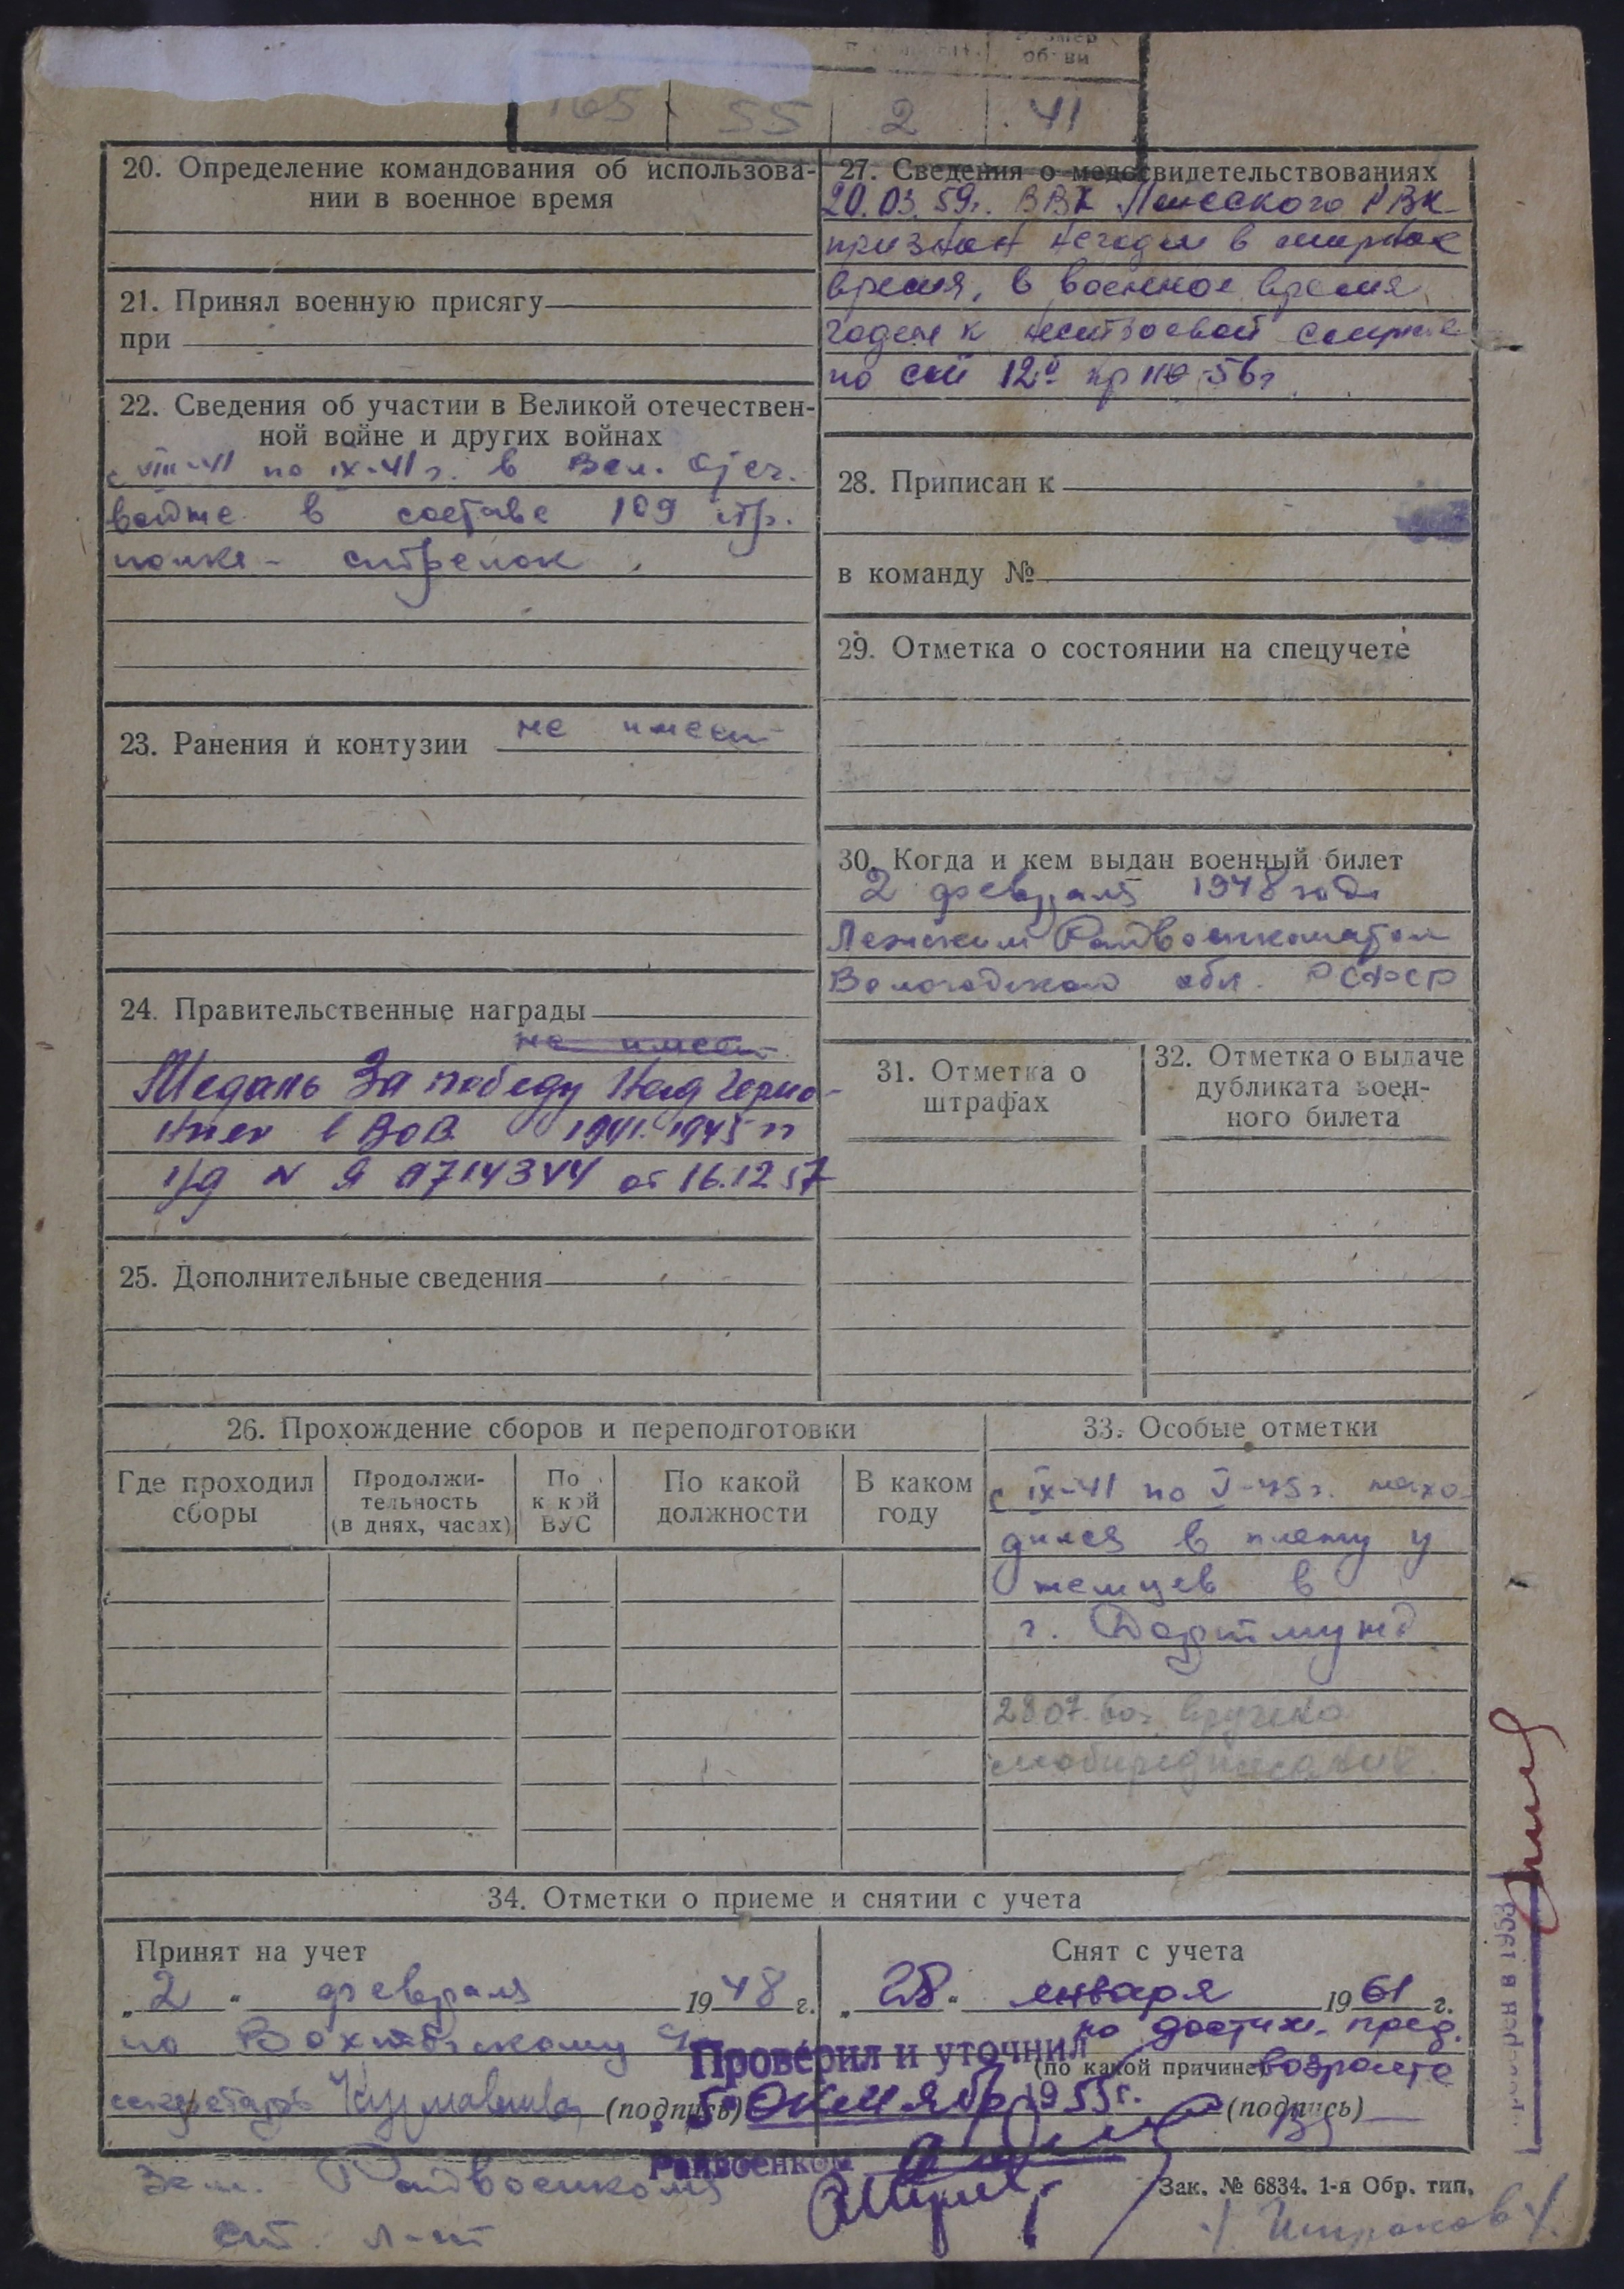 обуви
165 55 2 41
20. Определение командования об использова-
нии в военное время
21. Принял военную присягу
при
22. Сведения об участии в Великой отечествен-
ной войне и других войнах
с VIII-41 по IX-41 г. в Вел. Отеч.
войне в составе 109 стр.
полка - стрелок
23. Ранения и контузии не имеет
24. Правительственные награды
не имеет
Медаль За победу Над Герма-
нией в ВОВ 1941-1945 гг
от 16.12.57
25. Дополнительные сведения
27. Сведения о медосвидетельствованиях
20.03.59г. ВВК РВК
признан негодн в мирное
время, в военное время
годен к нестроевой службе
по 12 пр 56г
28. Приписан к
в команду №
29. Отметка о состоянии на спецучете
30. Когда и кем выдан военный билет
2 февраля 1948 года
Лежским Райвоенкоматом
Вологодской обл. РСФСР
31. Отметка о
штрафах
32. Отметка о выдаче
дубликата воен-
ного билета
26. Прохождение сборов и переподготовки
Где проходил
сборы
Продолжи-
тельность
(в днях, часах)
По
к кой
ВУС
По какой
должности
В каком
году
33. Особые отметки
с IX-41 по V-45 г. нахо-
дился в плену у
немцев в
г. Дортмунд
28 07. 60г вручено
мобпредписание.
34. Отметки о приеме и снятии с учета
Принят на учет
„2“ февраля 1948 г.
по
секретарь (подпись)
Снят с учета
„28“ января 1961 г.
по достиж. пред.
(по какой причине) возраста
(подпись)
Проверил и уточнил
„5“ октября 1955 г.
Райвоенком
Зам. Райвоенкома
ст. л-т
Зак. № 6834. 1-я Обр. тип.